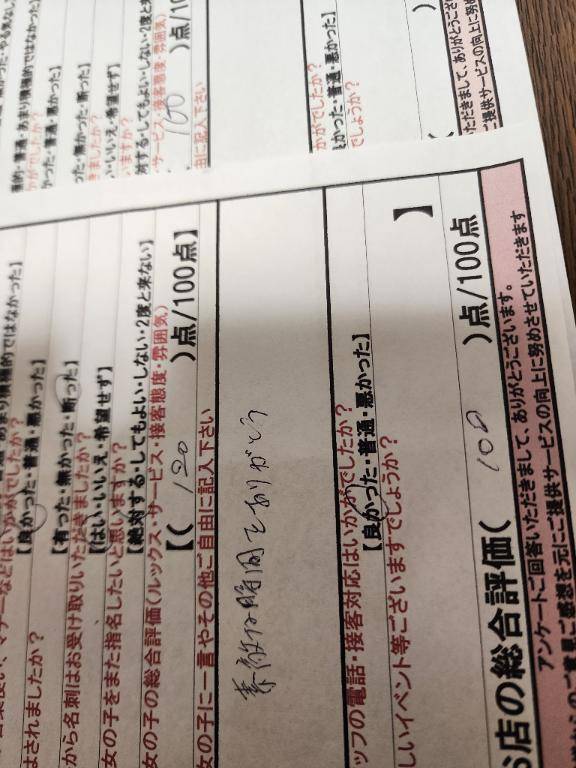 あまり積極的ではなかった】
葉使い、マナーなどはいかがでしたか？
【良かった・普通・悪かった】
はされましたか？
【有った・無かった・断った】
から名刺はお受け取りいただきましたか？
【はい・いいえ・希望せず】
女の子をまた指名したいと思いますか？
【絶対する・してもよい・しない・2度と来ない】
女の子の総合評価(ルックス・サービス・接客態度・雰囲気)
【( 120 )点/100点】
女の子に一言やその他ご自由に記入下さい
素敵な時間をありがとう
ッフの電話・接客対応はいかがでしたか？
【良かった・普通・悪かった】
しいイベント等ございますでしょうか？
】
お店の総合評価( 100 )点/100点
アンケートご回答いただきまして、ありがとうございます。
からのご意見ご感想を元にご提供サービスの向上に努めさせていただきます
普通・あまり積極的ではなかった】
がでしたか？
かった・普通・悪かった】
った・無かった・断った】
きましたか？
い・いいえ・希望せず】
いますか？
対する・してもよい・しない・2度と来
サービス・接客態度・雰囲気)
100 )点/10
由に記入下さい
かがでしたか？
良かった・普通・悪かった】
でしょうか？
】
ただきまして、ありがとうござい
ご提供サービスの向上に努め